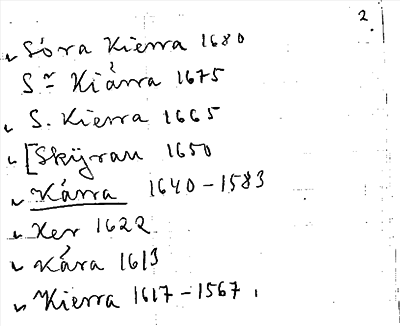 2.
Sóra Kierra 1680
S~ Kiárra 1675
S. Kierra 1665
[Skÿrau 1650
Kárra 1640-1583
Ker 1622
Kára 1613
Kierra 1617-1567.